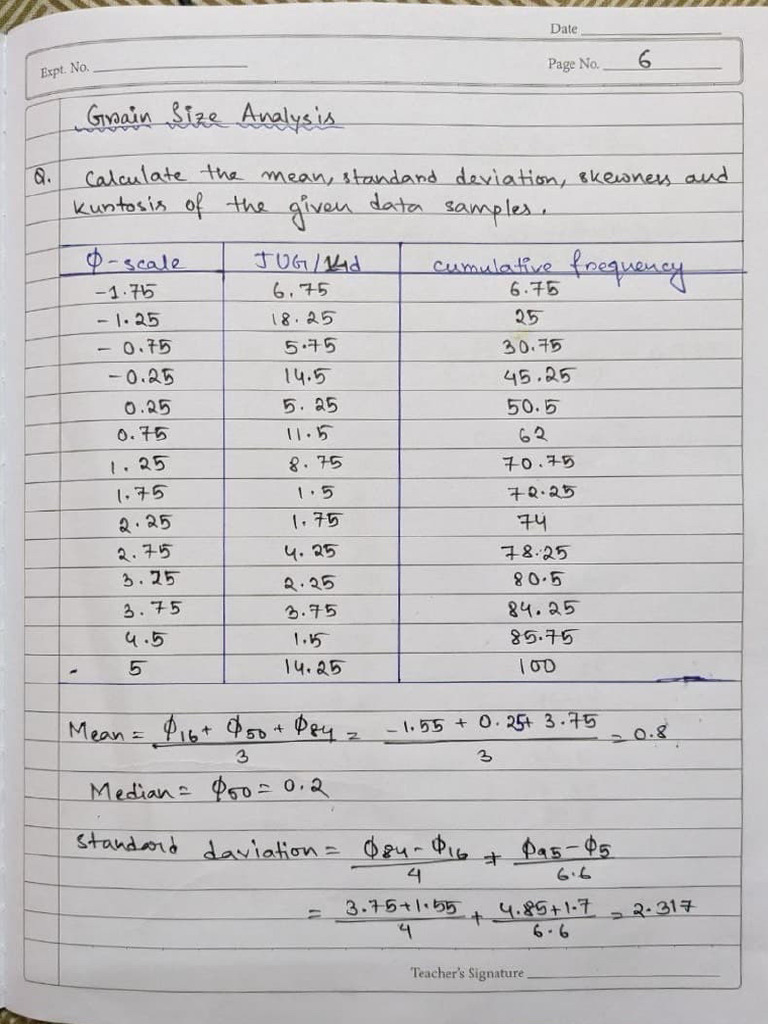 Date
Expt. No.
Page No. 6
Grain Size Analysis
Q. Calculate the mean, standard deviation, skewness and
kurtosis of the given data samples.
Φ-scale JUG/ cumulative frequency
-1.75 6.75 6.75
-1.25 18.25 25
-0.75 5.75 30.75
-0.25 14.5 45.25
0.25 5.25 50.5
0.75 11.5 62
1.25 8.75 70.75
1.75 1.5 72.25
2.25 1.75 74
2.75 4.25 78.25
3.25 2.25 80.5
3.75 3.75 84.25
4.5 1.5 85.75
- 5 14.25 100
Mean = Φ16 + Φ50 + Φ84 / 3 = -1.55 + 0.25 + 3.75 / 3 = 0.8
Median = Φ50 = 0.2
Standard daviation = Φ84 - Φ16 / 4 + Φ95 - Φ5 / 6.6
= 3.75+1.55 / 4 + 4.85+1.7 / 6.6 = 2.317
Teacher's Signature